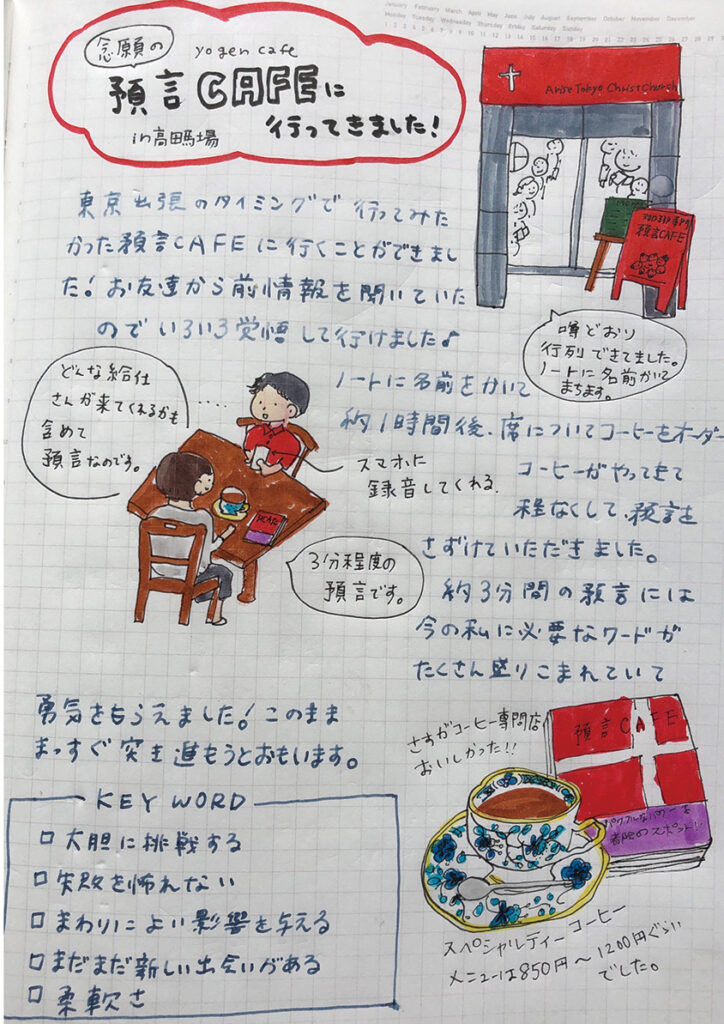 January February March April May June July August September October November December
Monday Tuesday Wednesday Thursday Friday Saturday Sunday
念願の
yogen cafe
預言CAFEに
行ってきました!
in高田馬場
Arise Tokyo Christ Church
預言CAFE
東京出張のタイミングで行ってみた
かった預言CAFEに行くことができまし
た!お友達から前情報を聞いていた
のでいろいろ覚悟して行けました♪
噂どおり
行列できてました。
ノートに名前かいて
まちます。
どんな給仕
さんが来てくれるかも
含めて
預言なのです。
‥‥‥
ノートに名前をかいて
約1時間後、席についてコーヒーをオーダー
スマホに
録音してくれる.
コーヒーがやってきて
程なくして、預言を
さずけていただきました。
3分程度の
預言です。
約3分間の預言には
今の私に必要なワードが
たくさん盛りこまれていて
勇気をもらえました!このまま
まっすぐ突き進もうとおもいます。
KEY WORD
□大胆に挑戦する
□失敗を怖れない
□まわりによい影響を与える
□まだまだ新しい出会いがある
□柔軟さ
さすがコーヒー専門店
おいしかった!!
預言CAFE
スペシャルティーコーヒー
メニューは850円〜1200円ぐらい
でした。